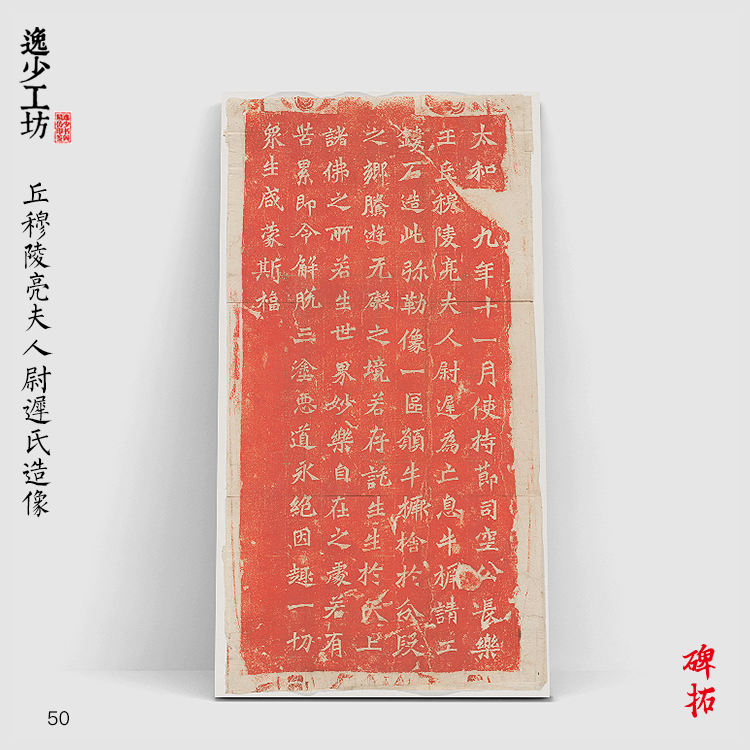 逸少工坊
丘穆陵亮夫人尉遲氏造像
太和　九年十一月使持節司空公長樂
王丘穆陵亮夫人尉遲為亡息牛橛請工
鏤石造此弥勒像一區願牛橛捨於分段
之鄉騰遊无礙之境若存託生生於天上
諸佛之所若生世界妙樂自在之處若有
苦累即令解脫三塗惡道永絕因趣一切
衆生咸蒙斯福
碑拓
50